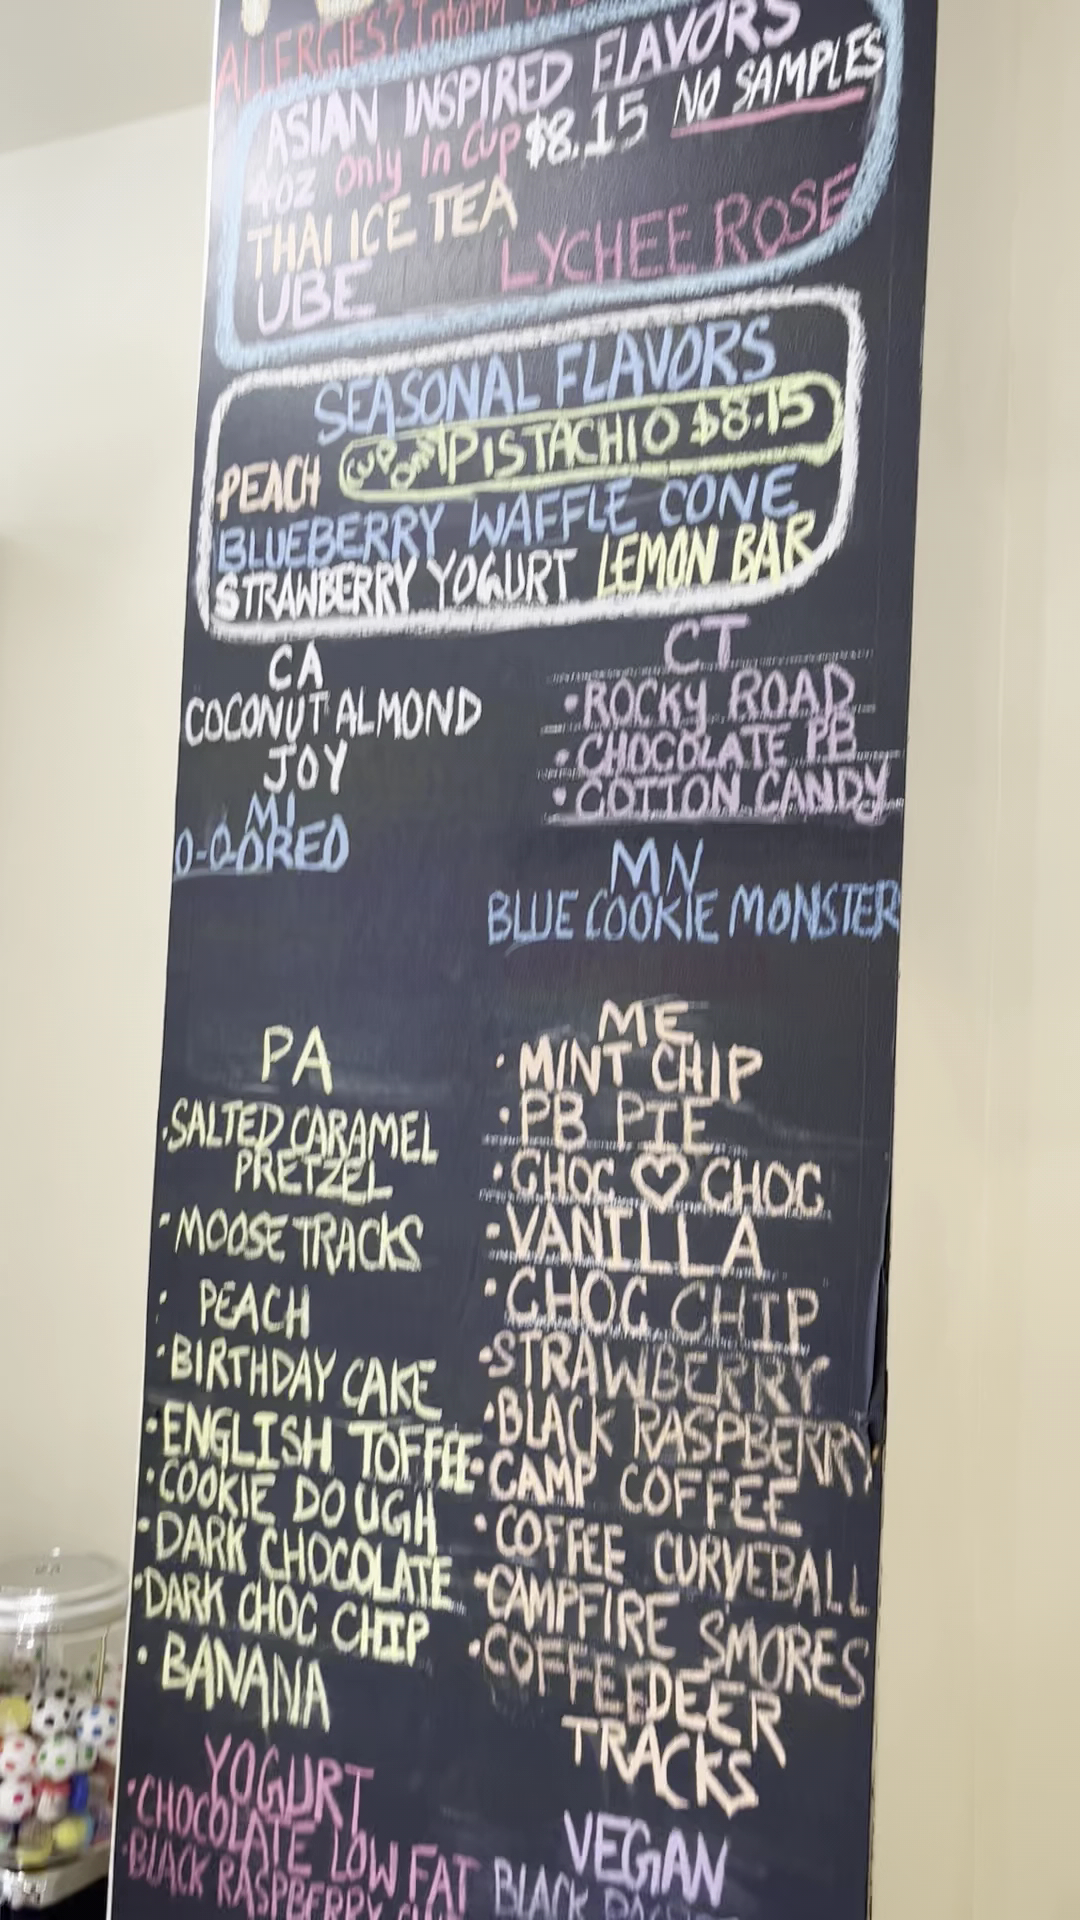 ALLERGIES? Inform
ASIAN INSPIRED FLAVORS
4oz Only In Cup $8.15 NO SAMPLES
THAI ICE TEA
LYCHEE ROSE
UBE
SEASONAL FLAVORS
PEACH CUP ONLY PISTACHIO $8.15
BLUEBERRY WAFFLE CONE
STRAWBERRY YOGURT LEMON BAR
CA
COCONUT ALMOND
JOY
MI
O-O-OREO
CT
•ROCKY ROAD
•CHOCOLATE PB
•COTTON CANDY
MN
BLUE COOKIE MONSTER
PA
•SALTED CARAMEL
PRETZEL
•MOOSE TRACKS
: PEACH
•BIRTHDAY CAKE
•ENGLISH TOFFEE
•COOKIE DOUGH
•DARK CHOCOLATE
•DARK CHOC CHIP
•BANANA
ME
•MINT CHIP
•PB PIE
•CHOC ♡ CHOC
•VANILLA
•CHOC CHIP
•STRAWBERRY
•BLACK RASPBERRY
•CAMP COFFEE
•COFFEE CURVEBALL
•CAMPFIRE SMORES
•COFFEE DEER
TRACKS
YOGURT
•CHOCOLATE LOW FAT
•BLACK RASPBERRY
VEGAN
BLACK